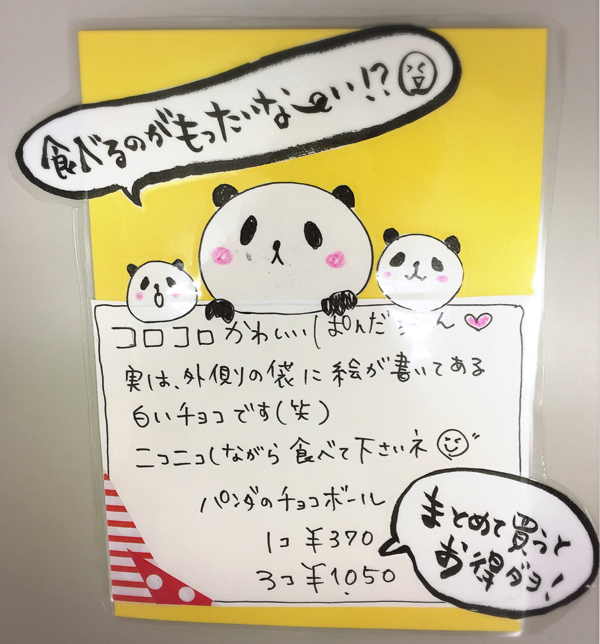 食べるのがもったいな〜い!?
コロコロかわいいぱんだちゃん
実は、外側の袋に絵が書いてある
白いチョコです(笑)
ニコニコしながら食べて下さいネ
パンダのチョコボール
1コ ¥370
3コ ¥1,050
まとめて買うと
お得ダヨ!